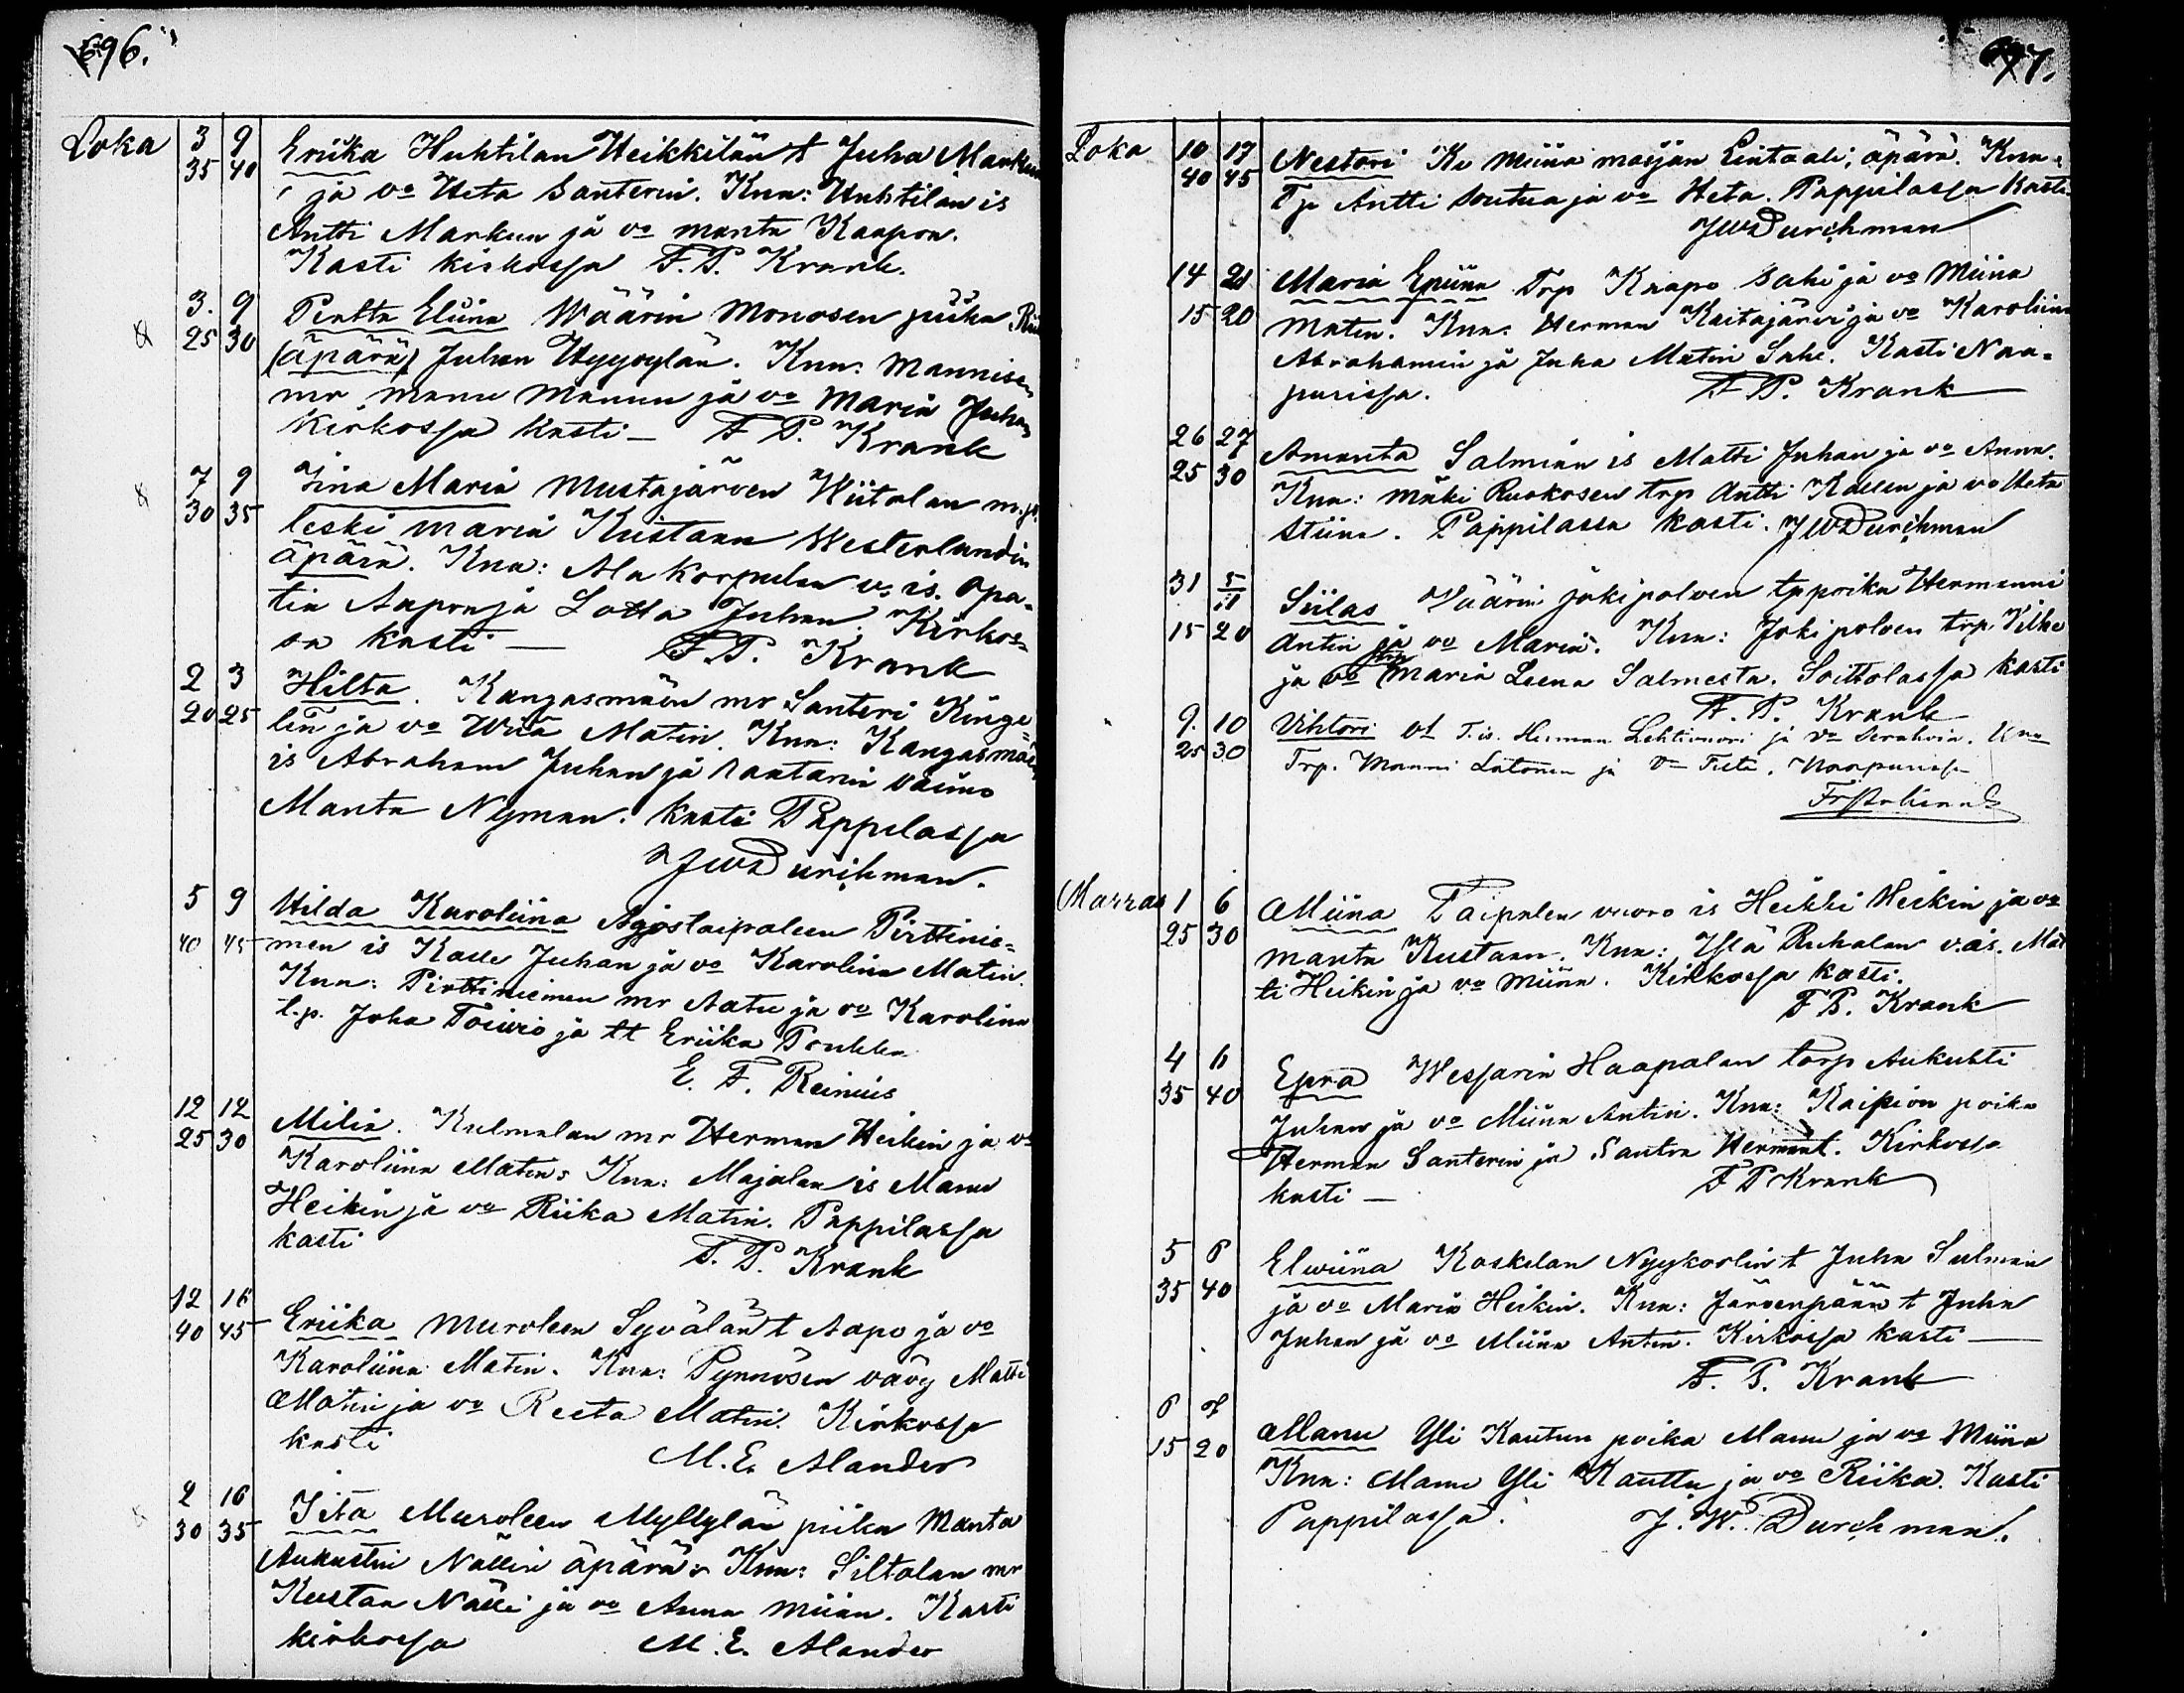 696.
Loka 3 9 Eriika Huhtilan Heikkilän t Juha Markun
35 40 ja vo Heta Santerin. Knn: Huhtilan is
Antti Markun ja vo Manta Kaapon.
Kasti kirkossa F.P. Krank.
3. 9 Pertta Eliina Väärin Monosen piika
25 30 (äpärä) Juhan Hyypylän. Knn. Mannisen
mr Manu Manun ja vo Maria Juhan
Kirkossa kasti — F P. Krank
7 9 Iina Maria Mustajärven Wiitalan
30 35 leski Maria Kustaan Westerlundin
äpärä. Knn: Ala Korpulan v. is. Opa-
tin Aapon ja Lotta Juhan. Kirkos-
sa kasti — F.P. Krank
2 3 Hilta. Kangasmäen mr Santeri Kinge-
20 25 lin ja vo Wiia Matin. Knn: Kangasmäen
is Abraham Juhan ja räätärin vaimo
Manta Nyman. kasti Pappilassa
JWDurchman.
5 9 Hilda Karoliina Ajostaipaleen Pirttinie-
40 45 men is Kalle Juhan ja vo Karolina Matin.
Knn: Pirttiniemen mr Aatu ja vo Karolina
t.p. Joha Toivio ja tt Eriika Poukka
E. F. Reinius
12 12 Milia. Kulmalan mr Herman Heikin ja vo
25 30 Karoliina Matin. Knn: Majalan is Manu
Heikin ja vo Riika Matin. Pappilassa
kasti F. P. Krank
12 16 Eriika Muroleen Syvälän t Aapo ja vo
40 45 Karoliina Matin. Knn: Pynnösen vävy Matti
Matin ja vo Reeta Matin. Kirkossa
kasti M. E. Alander
2 16 Iita Muroleen Myllylän piika Manta
30 35 Aukustin Nällin äpärä. Knn: Siltalan mr
Kustaa Nälli ja vo Anna Miina. Kasti
kirkossa M. E. Alander
697.
Loka 10 17 Nestori Ke Miina Marjan Lintaali; äpärä. Knn:
40 45 Tp Antti Soutu ja vo Heta. Pappilassa Kasti
JWDurchman
14 21 Maria Epiina Trp Kaapo Sahi ja vo Miina
15 20 Matin. Knn: Herman Kaitajärvi ja vo Karoliina
Abrahamin ja Juha Matin Sahi. Kasti Naa-
purissa. F P. Krank
26 27 Amanta Salmian is Matti Juhan ja vo Anna.
25 30 Knn: Mäki Ruokosen trp Antti Kallen ja vo Heta
Stiina. Pappilassa kasti. JWDurchman
31 5/11 Siilas Väärin Jokipolven tpp Hermanni
15 20 Antin ja vo Maria. Knn: Jokipolven trp. Vilhe
ja vo Maria Leena Salmesta. Soittolassa kasti
F. P. Krank
9. 10 Vihtori Herman Lehtivuori ja vo Serahvia. Knn
25 30 Trp. Manni Latonen ja vo Fiita. Naapurissa
Marras 1 6 Miina Taipalen vuoro is Heikki Heikin ja vo
25 30 Manta Kustaan. Knn: Ylä Ruhalan v. is. Mat
ti Heikin ja vo Miina. Kirkossa kasti.
F P. Krank
4 6 Epra Wesjarin Haapalan torp Aukusti
35 40 Juhan ja vo Miina Antin. Knn: Kaipion poika
Herman Santerin ja Santra Hermant. Kirkossa
kasti — F P Krank
5 6 Elviina Koskelan Nyykoolin t Juha Salmin
35 40 ja vo Maria Heikin. Knn: Järvenpään t Juha
Juhan ja vo Miina Antin. Kirkossa kasti —
F. P. Krank
6 7 Manu Yli Kautun poika Manu ja vo Miina
15 20 Knn: Manu Yli Kauttu ja vo Riika. Kasti
Pappilassa. J. W. Durchman.